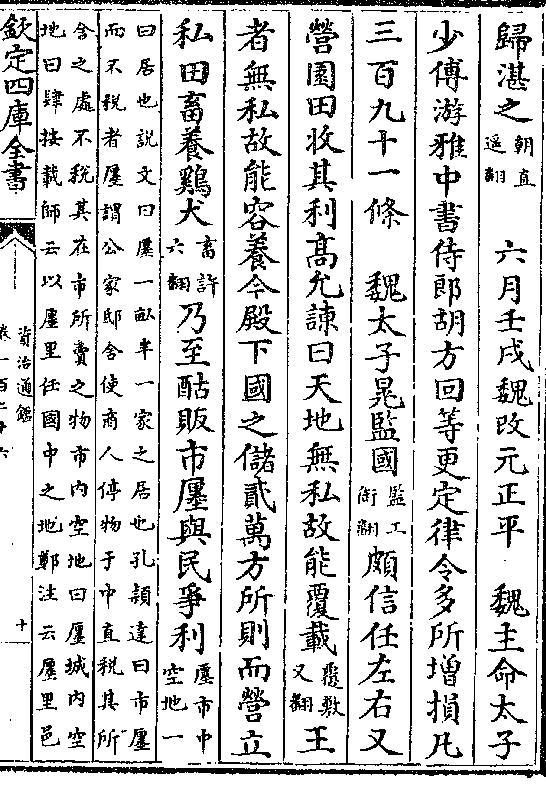 歸湛之朝直遥翻　六月壬戌魏改元正平　魏主命太子
少傅游雅中書侍郎胡方回等更定律令多所增損凡
三百九十一條　魏太子晃監國監工銜翻頗信任左右又
營園田收其利髙允諌曰天地無私故能覆載覆敷又翻王
者無私故能容養今殿下國之儲貳萬方所則而營立
私田畜養鷄犬畜許六翻乃至酤販市㕓與民爭利㕓市中空地一
曰居也説文曰㕓一畝半一家之居也孔頴達曰市㕓
而不税者㕓謂公家邸舍使商人停物于中直税其所
舍之處不税其在市所賣之物市内空地曰㕓城内空
地曰肆按載師云以㕓里任國中之地鄭注云㕓里邑
欽定四庫全書
資治通鑑
卷一百二十六
十